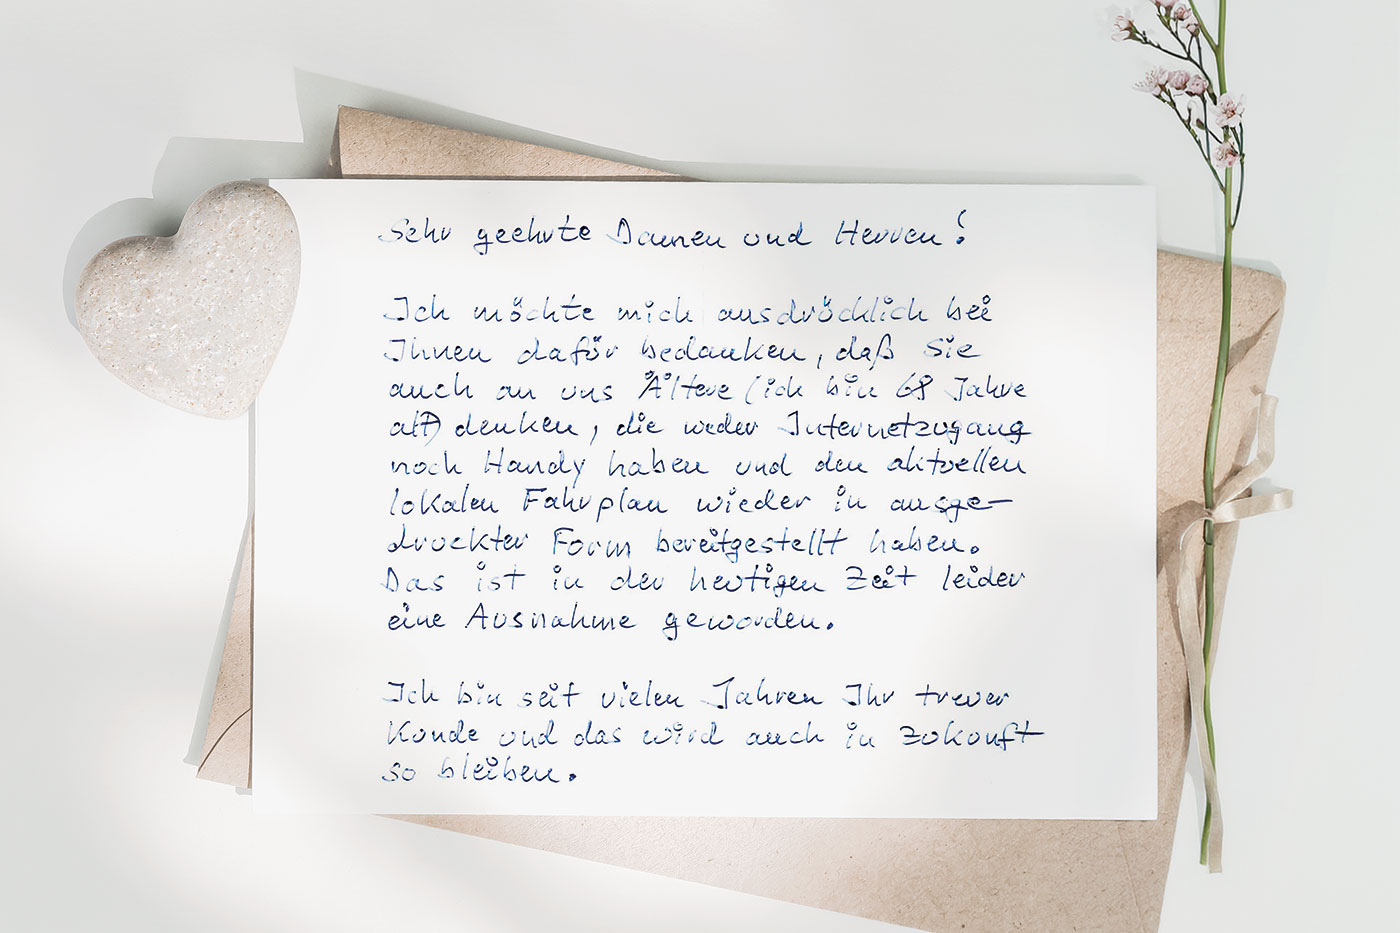 Sehr geehrte Damen und Herren!
Ich möchte mich ausdrücklich bei
Ihnen dafür bedanken, daß Sie
auch an uns Ältere (ich bin 68 Jahre
alt) denken, die weder Internetzugang
noch Handy haben und den aktuellen
lokalen Fahrplan wieder in ausge-
druckter Form bereitgestellt haben.
Das ist in der heutigen Zeit leider
eine Ausnahme geworden.
Ich bin seit vielen Jahren Ihr treuer
Kunde und das wird auch in Zukunft
so bleiben.